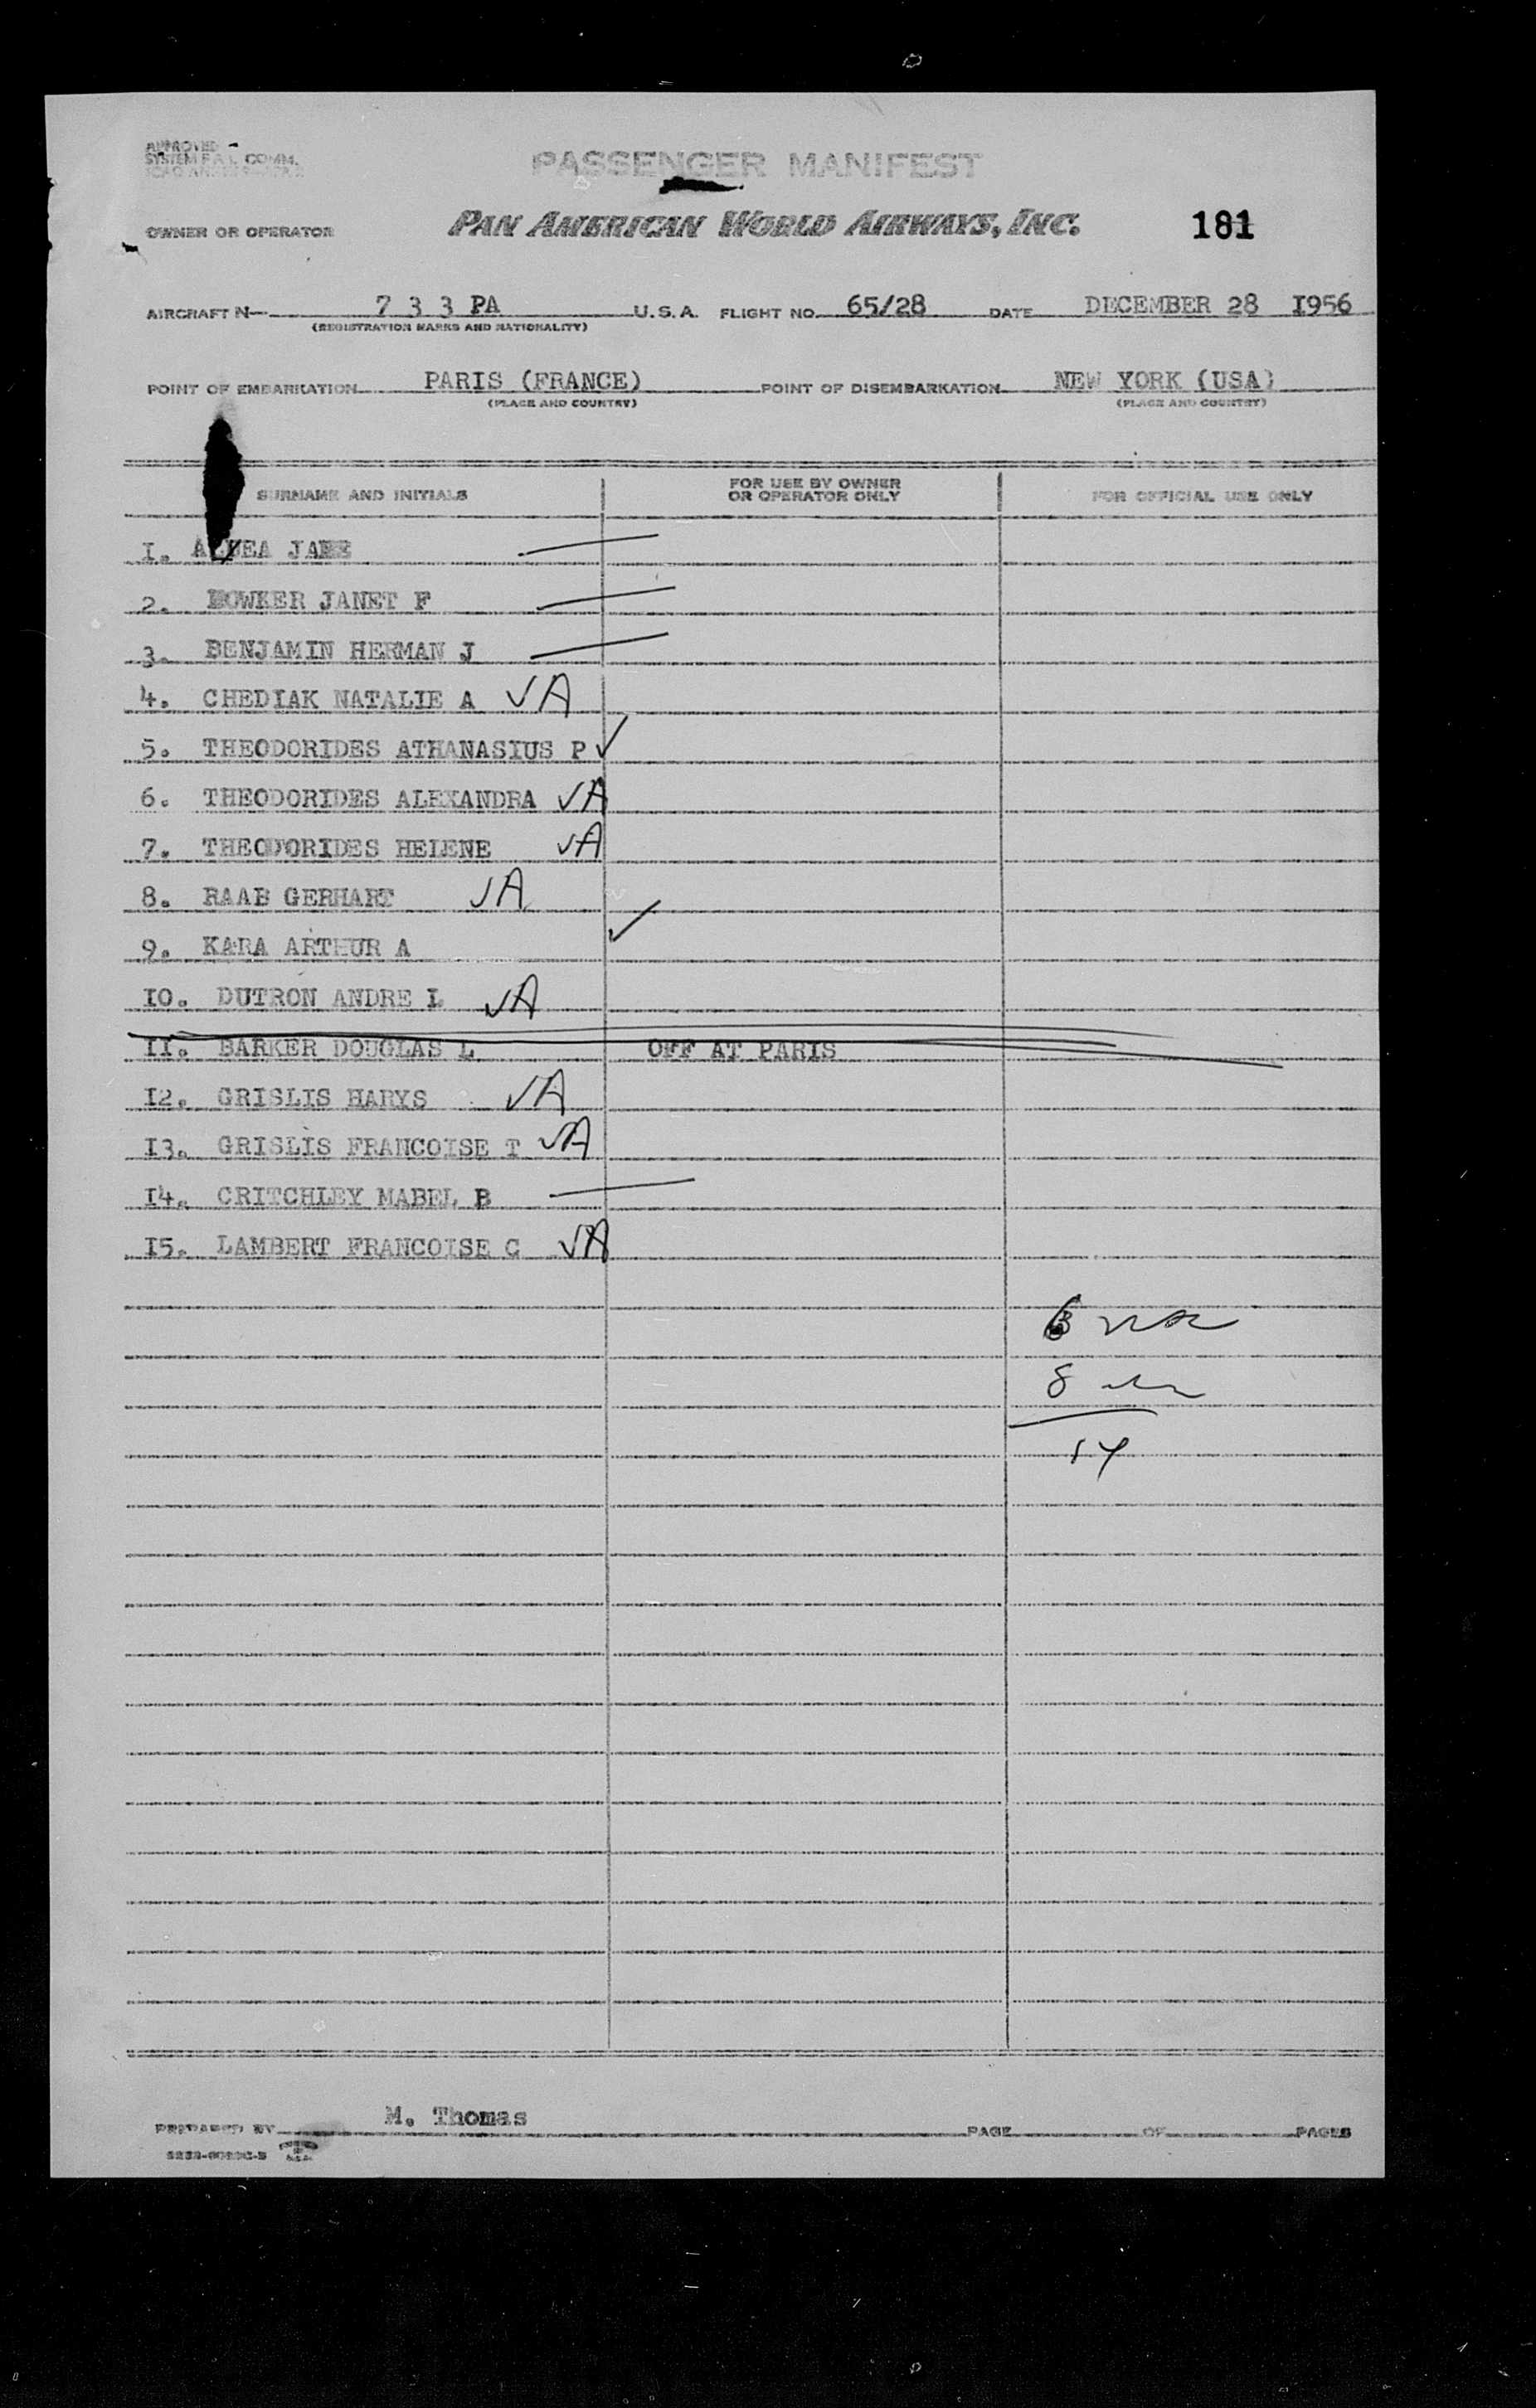 APPROVED
SYSTEM F.A.L. COMM.
PASSENGER MANIFEST
OWNER OR OPERATOR PAN AMERICAN WORLD AIRWAYS, INC. 181
AIRCRAFT N- 7 3 3 PA U.S.A. FLIGHT NO. 65/28 DATE DECEMBER 28 I956
(REGISTRATION MARKS AND NATIONALITY)
POINT OF EMBARKATION PARIS (FRANCE) POINT OF DISEMBARKATION NEW YORK (USA)
(PLACE AND COUNTRY) (PLACE AND COUNTRY)
SURNAME AND INITIALS FOR USE BY OWNER OR OPERATOR ONLY FOR OFFICIAL USE ONLY
I.
2. BOWKER JANET F
3. BENJAMIN HERMAN J
4. CHEDIAK NATALIE A ✓A
5. THEODORIDES ATHANASIUS P ✓
6. THEODORIDES ALEXANDRA ✓A
7. THEODORIDES HELENE ✓A
8. RAAB GERHART ✓A
9. KARA ARTHUR A ✓
IO. DUTRON ANDRE L ✓A
II. BARKER DOUGLAS L OFF AT PARIS
I2. GRISLIS HARYS ✓A
I3. GRISLIS FRANCOISE T ✓A
I4. CRITCHLEY MABEL B
I5. LAMBERT FRANCOISE C ✓A
6
8
14
PREPARED BY M. Thomas PAGE OF PAGES